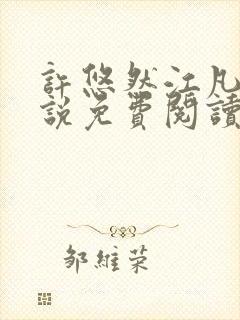 許悠然江凡
說免費閱讀
鄒維荣